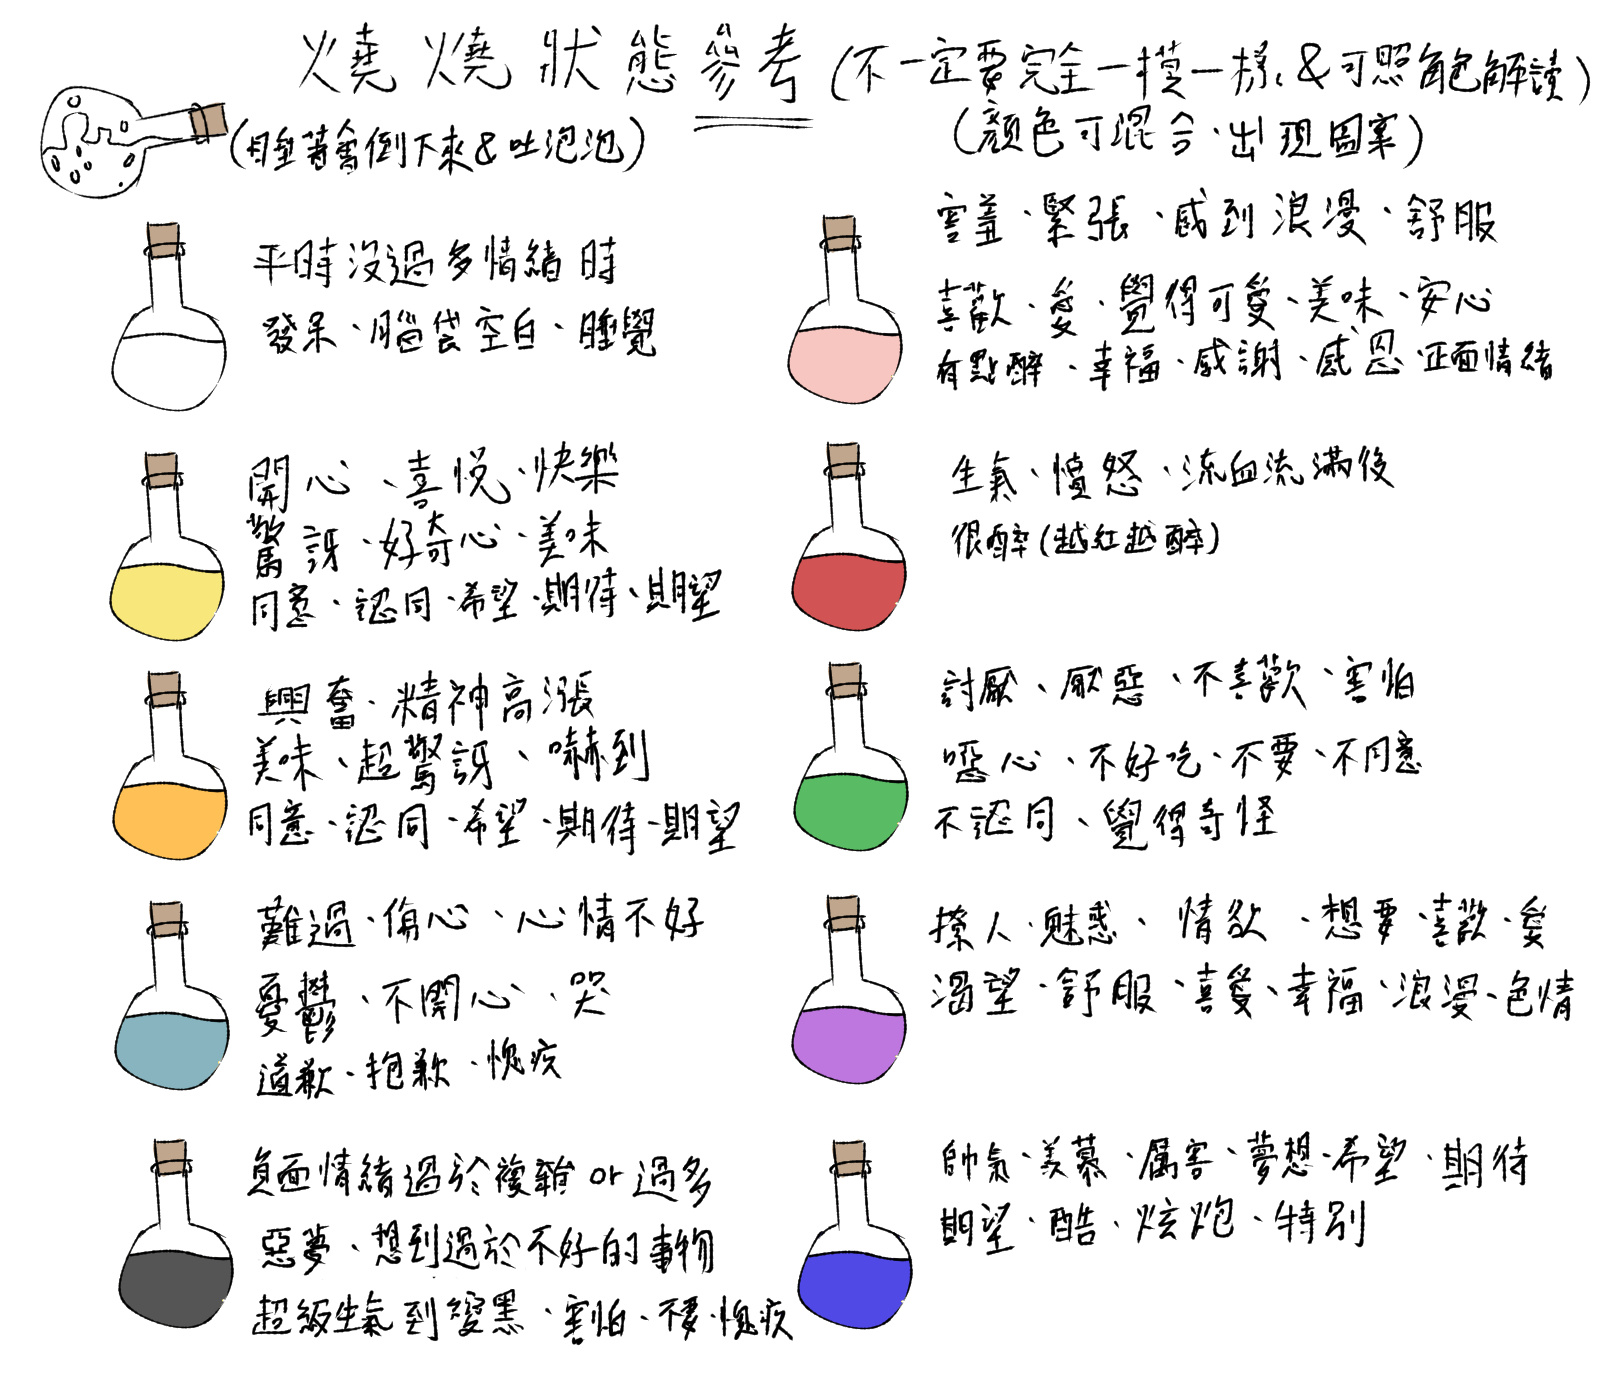 燒燒狀態參考(不一定要完全一模一樣&可照角色解讀)
(睡著會倒下來&吐泡泡)
(顏色可混合、出現圖案)
平時沒過多情緒時
發呆、腦袋空白、睡覺
害羞、緊張、感到浪漫、舒服
喜歡、愛、覺得可愛、美味、安心
有點醉、幸福、感謝、感恩、正面情緒
開心、喜悅、快樂
驚訝、好奇心、美味
同意、認同、希望、期待、期望
生氣、憤怒、流血流滿後
很醉(越紅越醉)
興奮、精神高漲
美味、超驚訝、嚇到
同意、認同、希望、期待、期望
討厭、厭惡、不喜歡、害怕
噁心、不好吃、不要、不同意
不認同、覺得奇怪
難過、傷心、心情不好
憂鬱、不開心、哭
道歉、抱歉、愧疚
撩人、魅惑、情欲、想要、喜歡、愛
渴望、舒服、喜愛、幸福、浪漫、色情
負面情緒過於複雜or過多
惡夢、想到過於不好的事物
超級生氣到變黑、害怕、不要、愧疚
帥氣、羨慕、厲害、夢想、希望、期待
期望、酷、炫炮、特別